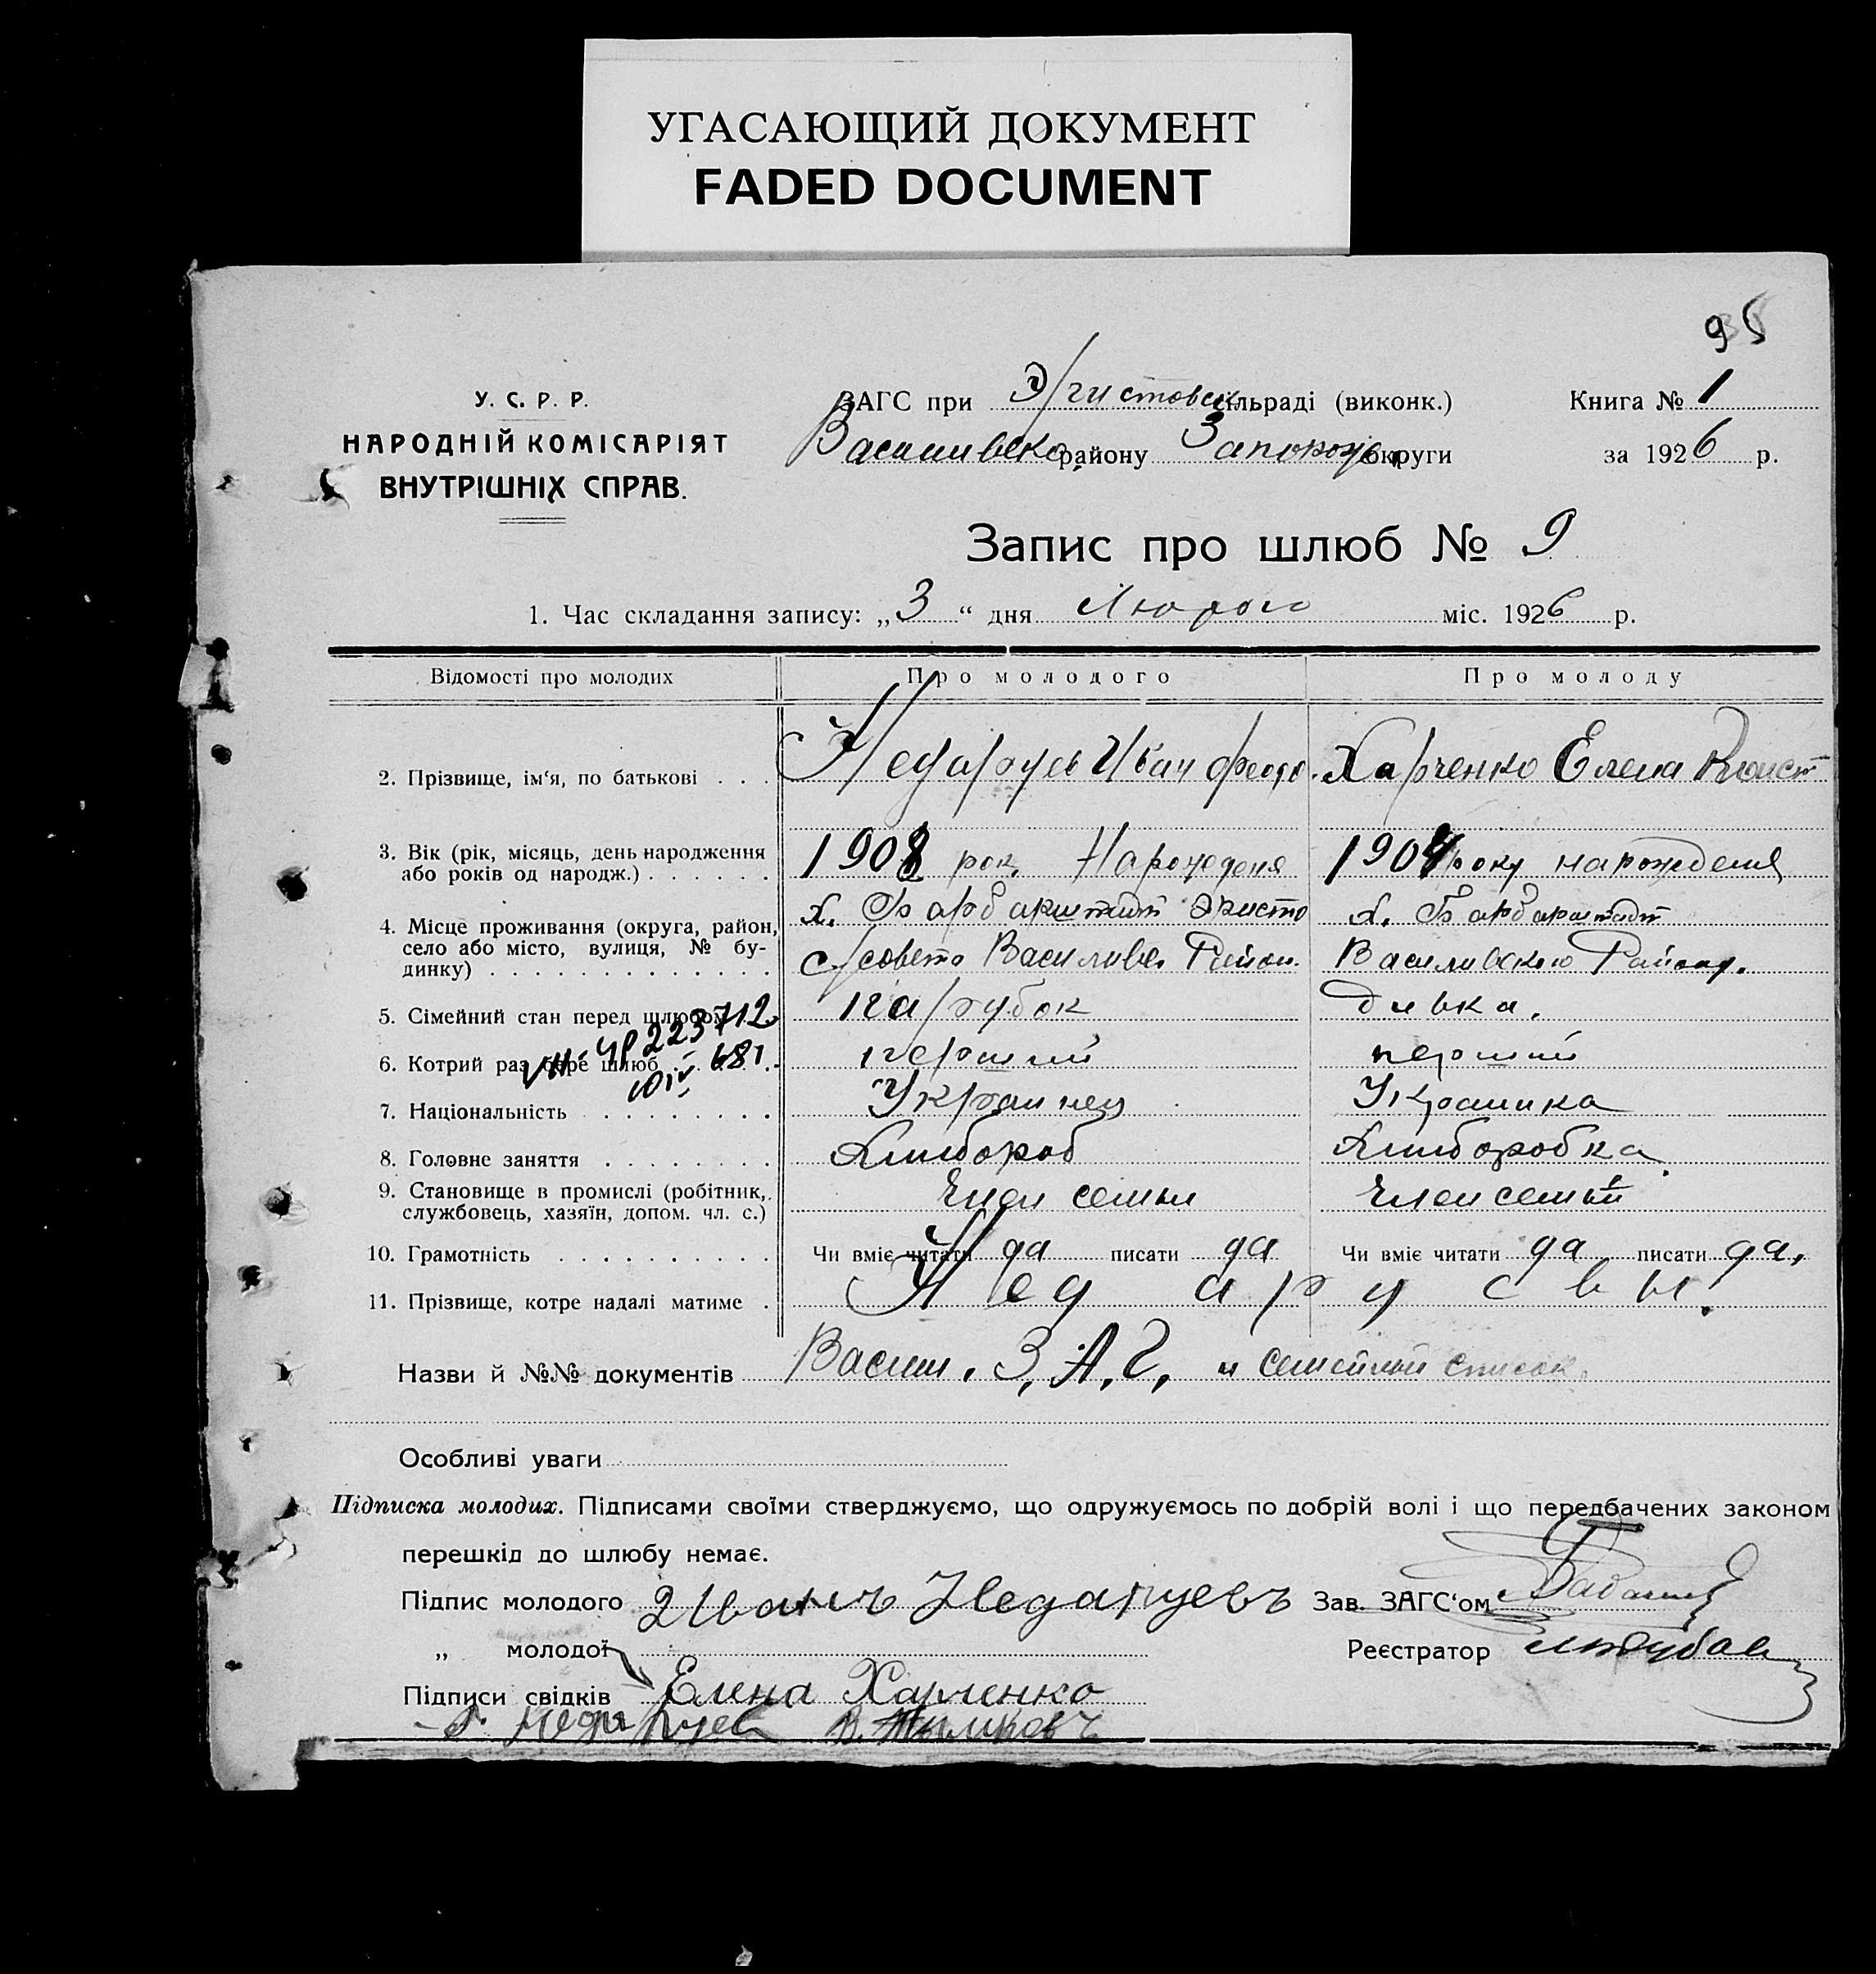 УГАСАЮЩИЙ ДОКУМЕНТ
FADED DOCUMENT
У. С. Р. Р.
НАРОДНІЙ КОМІСАРІЯТ
ВНУТРІШНІХ СПРАВ.
ЗАГС при сільраді (виконк.)
Книга № 1
Василивско району Запорож округи
за 1926 р.
Запис про шлюб № 9
1. Час складання запису: „3“ дня Лютого міс. 1926 р.
Відомості про молодих
Про молодого
Про молоду
2. Прізвище, ім'я, по батькові . . .
Недаруев Иван Феодо.
Харченко Елена Конст
3. Вік (рік, місяць, день народження
або років од народж.) . . . . . .
1908 рок. Нарождения
1904 року нарождения
4. Місце проживання (округа, район,
село або місто, вулиця, № бу-
динку) . . . . . . . . . . . . .
х. Барбарштадт Эристо
с/совета Василивс. Район.
х. Барбарштадт
Василивского Району.
5. Сімейний стан перед шлюбом . .
парубок
дивка.
223712
6. Котрий раз бере шлюб . . . .
681
перший
перший
7. Національність . . . . . . . .
Украинец
Украинка
8. Головне заняття . . . . . . .
Хлибороб
Хлиборобка
9. Становище в промислі (робітник,
службовець, хазяїн, допом. чл. с.)
Член семьи
Член семьи
10. Грамотність . . . . . . . . .
Чи вміє читати да писати да
Чи вміє читати да писати да,
11. Прізвище, котре надалі матиме .
Недаруевы.
Назви й №№ документів Васил. З, А, Г, и семейный список.
Особливі уваги
Підписка молодих. Підписами своїми стверджуємо, що одружуємось по добрій волі і що передбачених законом
перешкід до шлюбу немає.
Підпис молодого Иванъ Недаруевъ
Зав. ЗАГС'ом
„ молодої
Реєстратор
Підписи свідків Елена Харченко
Недаруев